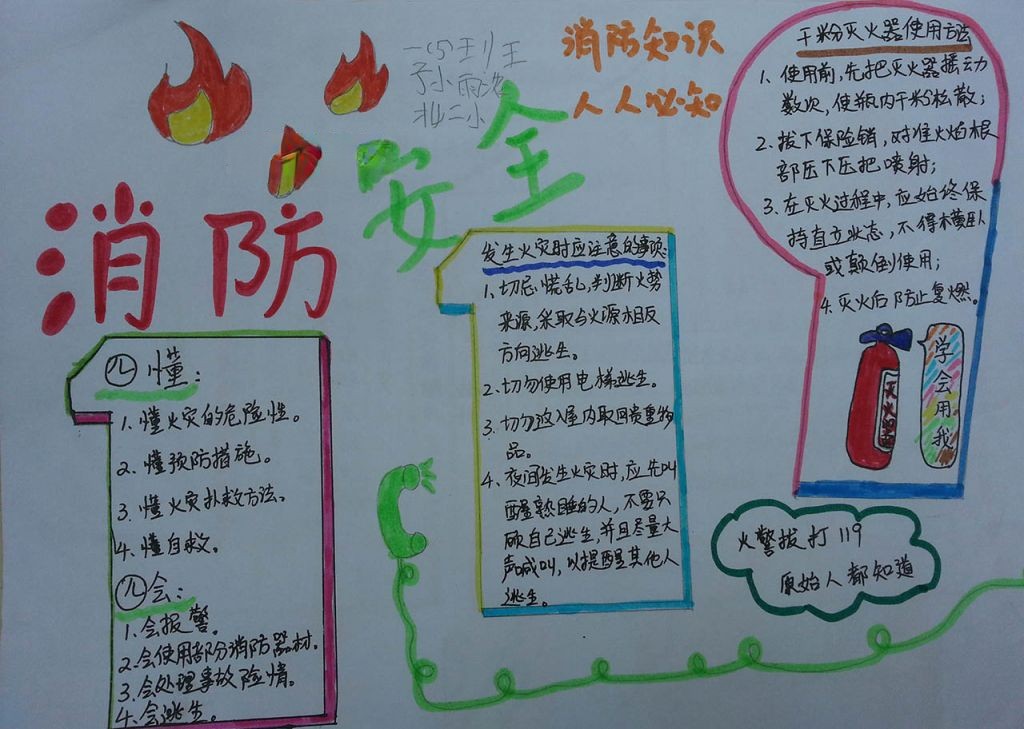 消防安全
消防知识
人人必知
一(5)班
北二小
四懂:
1.懂火灾的危险性。
2.懂预防措施。
3.懂火灾扑救方法。
4.懂自救。
四会:
1.会报警。
2.会使用部分消防器材。
3.会处理事故险情。
4.会逃生。
发生火灾时应注意的事项:
1.切忌慌乱,判断火势
来源,采取与火源相反
方向逃生。
2.切勿使用电梯逃生。
3.切勿返入屋内取回贵重物
品。
4.夜间发生火灾时,应先叫
醒熟睡的人,不要只
顾自己逃生,并且尽量大
声喊叫,以提醒其他人
逃生。
干粉灭火器使用方法
1、使用前,先把灭火器摇动
数次,使瓶内干粉松散;
2.拔下保险销,对准火焰根
部压下压把喷射;
3.在灭火过程中,应始终保
持直立状态,不得横卧
或颠倒使用;
4.灭火后防止复燃。
灭火器
学会用我
火警拔打119
原始人都知道